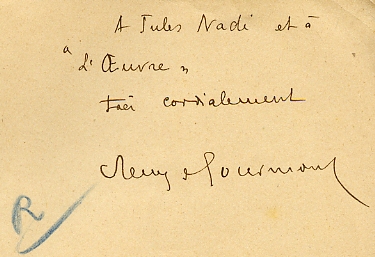 A Jules Nadi et à
" l'Œuvre "
très cordialement
Remy de Gourmont
R